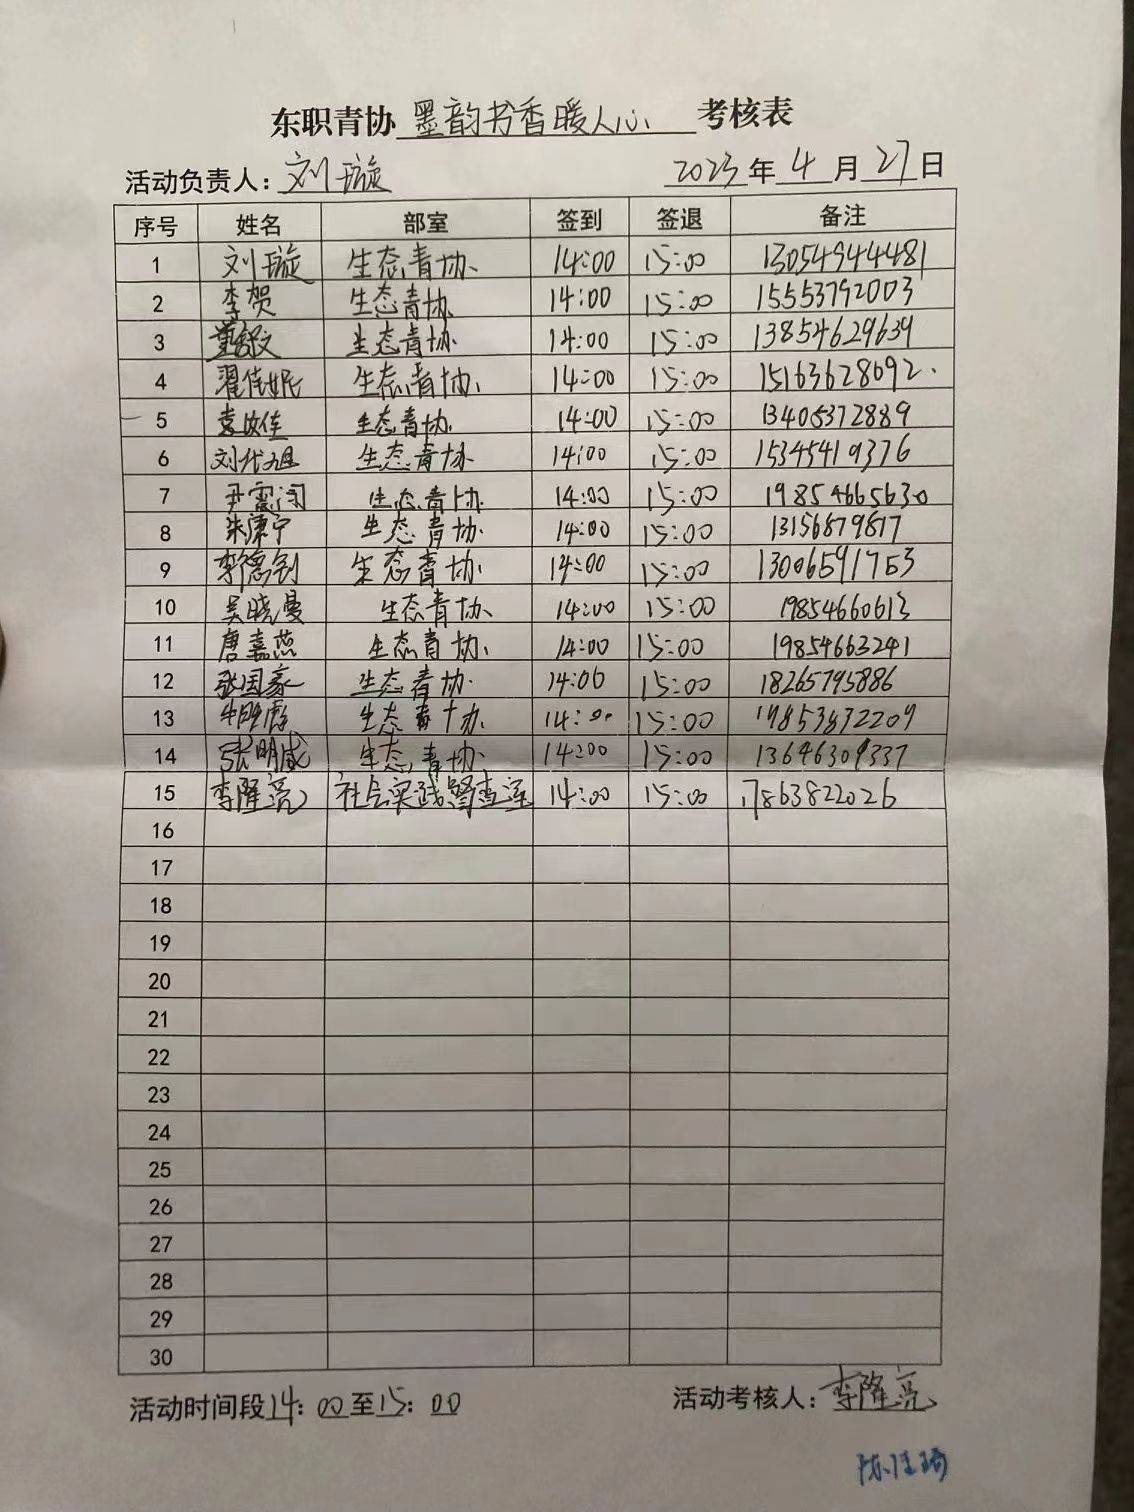 东职青协 墨韵书香暖人心 考核表
活动负责人：刘璇 2023年4月27日
序号 姓名 部室 签到 签退 备注
1 刘璇 生态青协 14:00 15:00 13054944481
2 李贺 生态青协 14:00 15:00 15553792003
3 生态青协 14:00 15:00 13854629639
4 翟佳妮 生态青协 14:00 15:00 15163628692
5 生态青协 14:00 15:00 13405372889
6 刘代旭 生态青协 14:00 15:00 15345419376
7 生态青协 14:00 15:00 19854665630
8 朱康宁 生态青协 14:00 15:00 13156879817
9 李德钊 生态青协 14:00 15:00 13006591753
10 吴晓曼 生态青协 14:00 15:00 19854660613
11 唐嘉燕 生态青协 14:00 15:00 19854663241
12 张国豪 生态青协 14:00 15:00 18265795886
13 生态青协 14:00 15:00 19853832209
14 张明威 生态青协 14:00 15:00 13646309337
15 李隆亮 社会实践 14:00 15:00 17863822026
16
17
18
19
20
21
22
23
24
25
26
27
28
29
30
活动时间段14：00至15：00 活动考核人：李隆亮